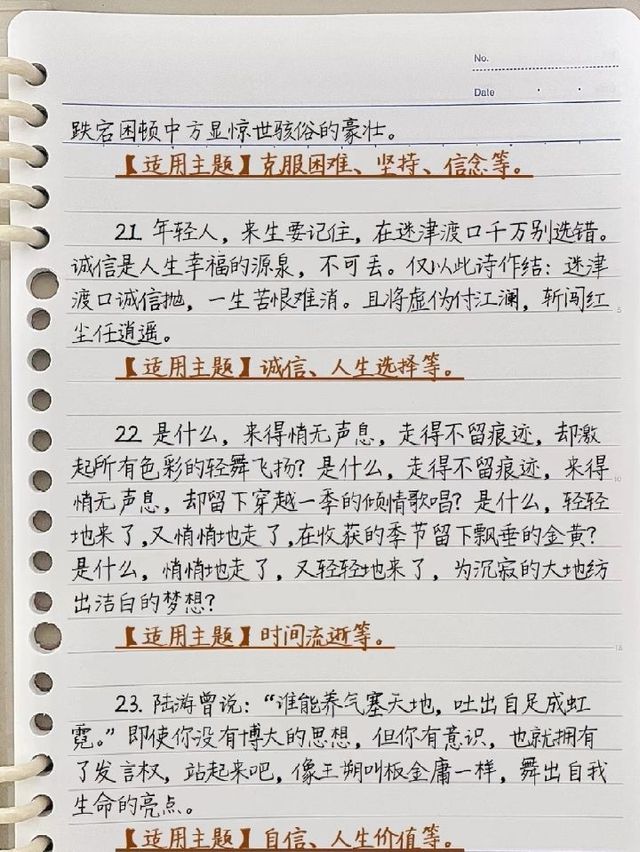 No.
Date
跌宕困顿中方显惊世骇俗的豪壮。
【适用主题】克服困难、坚持、信念等。
21. 年轻人，来生要记住，在迷津渡口千万别选错。
诚信是人生幸福的源泉，不可丢。仅以此诗作结：迷津
渡口诚信抛，一生苦恨难消。且将虚伪付江澜，斩闯红
尘任逍遥。
5
【适用主题】诚信、人生选择等。
22. 是什么，来得悄无声息，走得不留痕迹，却激
起所有色彩的轻舞飞扬？是什么，走得不留痕迹，来得
10
悄无声息，却留下穿越一季的倾情歌唱？是什么，轻轻
地来了，又悄悄地走了，在收获的季节留下飘垂的金黄？
是什么，悄悄地走了，又轻轻地来了，为沉寂的大地纺
出洁白的梦想？
【适用主题】时间流逝等。
15
23. 陆游曾说：“谁能养气塞天地，吐出自足成虹
霓。”即使你没有博大的思想，但你有意识，也就拥有
了发言权，站起来吧，像王朔叫板金庸一样，舞出自我
生命的亮点。
【适用主题】自信、人生价值等。